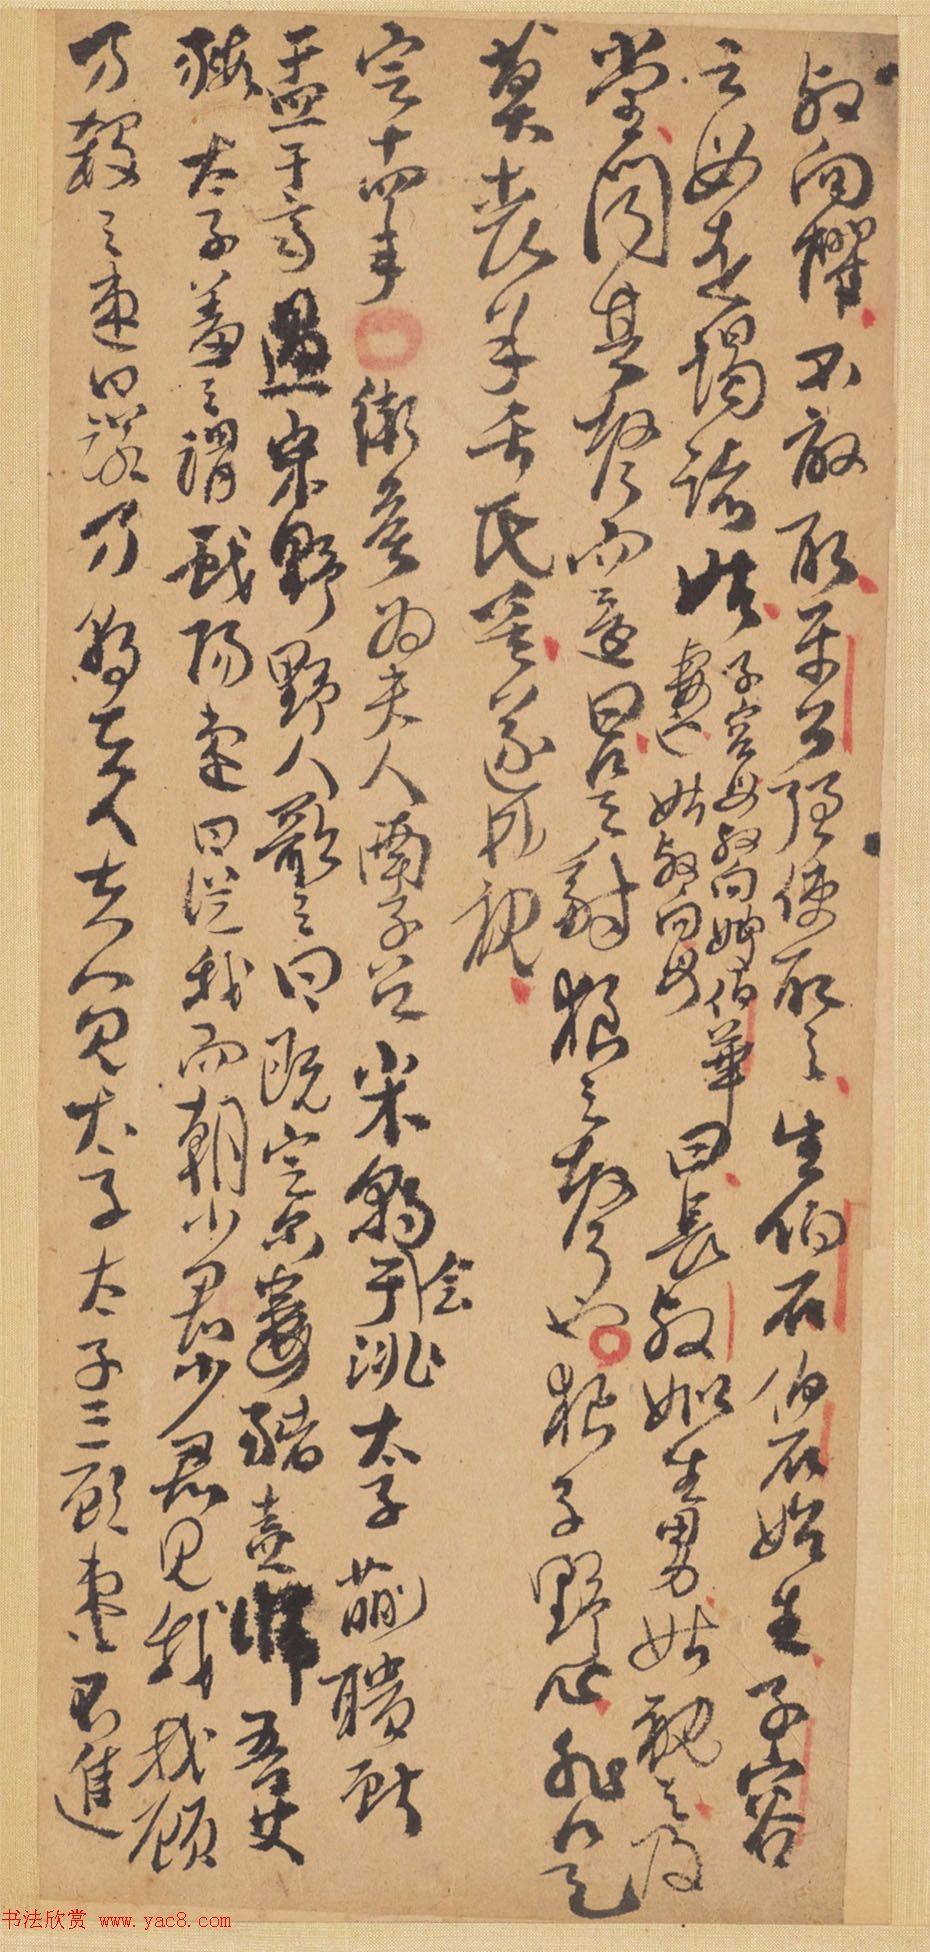 叔向懼不敢取平公強使取之生伯石伯石始生子容
之母走謁諸姑
子容母叔向嫂伯華
妻也姑叔向母
曰長叔姒生男姑視之及
堂聞其聲而還曰是豺狼之聲也狼子野心非是
莫喪羊舌氏矣遂弗視
定十四年衛侯為夫人南子召宋朝會于洮太子蒯聵獻
盂于齊過宋野野人歌之曰既定爾婁豬盍歸吾艾
豭太子羞之謂戲陽速曰從我而朝少君少君見我我顧
乃殺之速曰諾乃朝夫人夫人見太子太子三顧速不進
书法欣赏 www.yac8.com